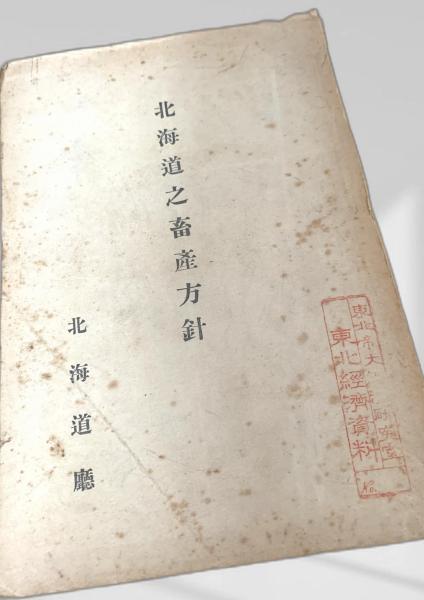 北海道之畜產方針
北海道廳
東北帝大
東北經濟資料
No.